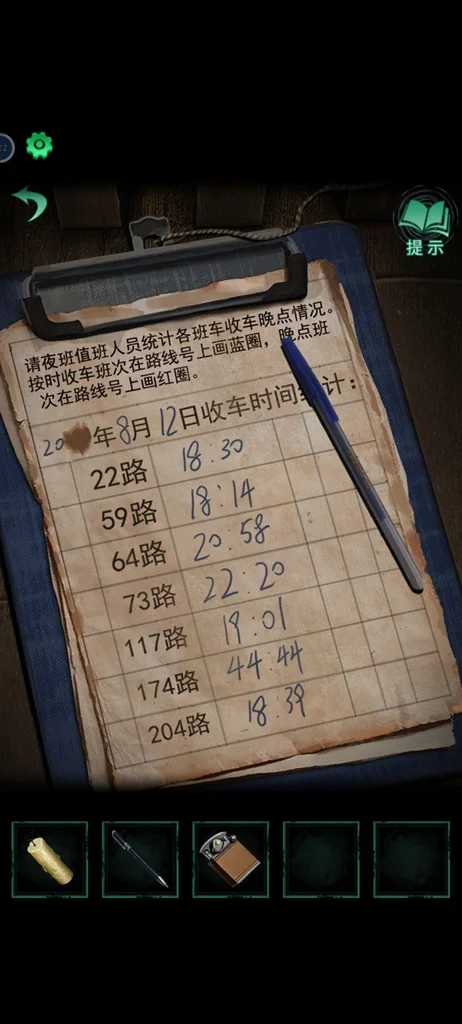 22
提示
请夜班值班人员统计各班车收车晚点情况。
按时收车班次在路线号上画蓝圈，晚点班
次在路线号上画红圈。
20 年8月12日收车时间 计：
22路 18:30
59路 18:14
64路 20:58
73路 22:20
117路 19:01
174路 44:44
204路 18:39